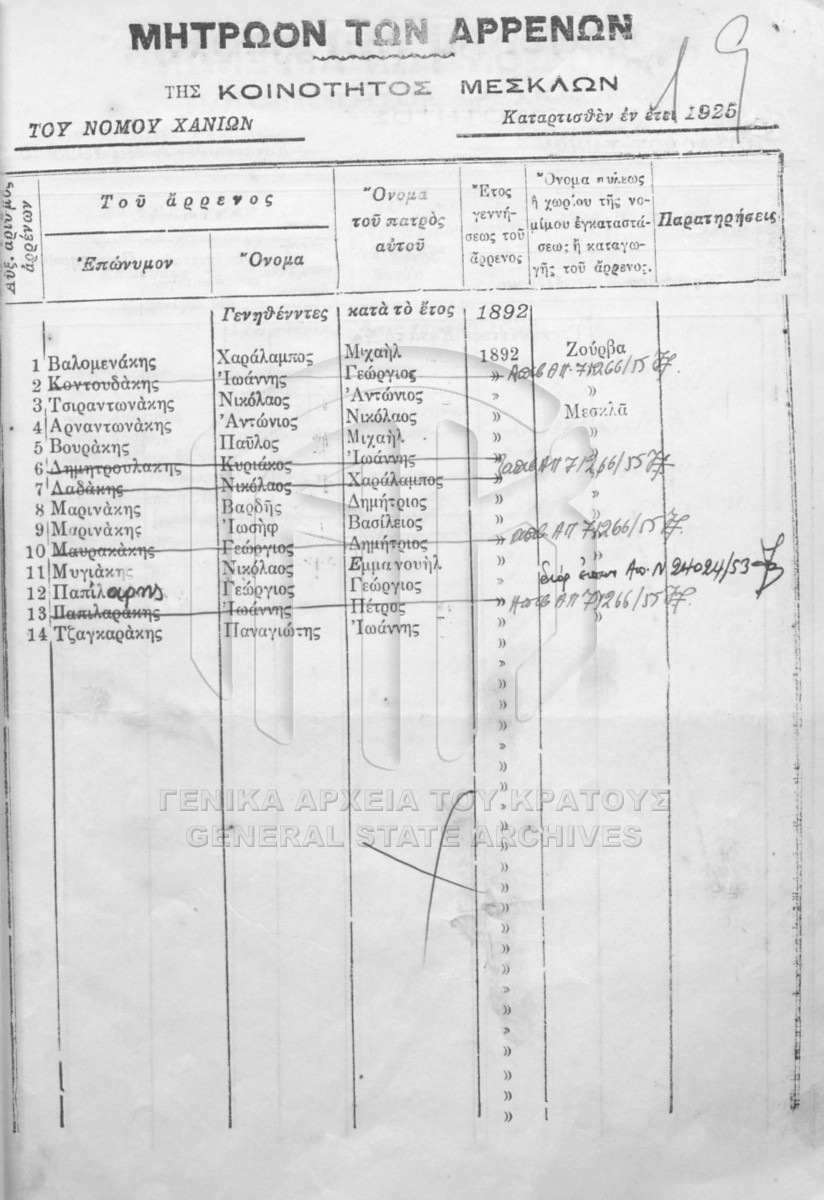 19
ΜΗΤΡΩΟΝ ΤΩΝ ΑΡΡΕΝΩΝ
ΤΗΣ ΚΟΙΝΟΤΗΤΟΣ ΜΕΣΚΛΩΝ
ΤΟΥ ΝΟΜΟΥ ΧΑΝΙΩΝ Καταρτισθὲν ἐν ἔτει 1925
Αὔξ. ἀριθμὸς ἀρρένων
Τοῦ ἄρρενος
Ἐπώνυμον Ὄνομα
Ὄνομα
τοῦ πατρὸς
αὐτοῦ
Ἔτος
γεννή-
σεως τοῦ
ἄρρενος
Ὄνομα πόλεως
ἢ χωρίου τῆς νο-
μίμου ἐγκαταστά-
σεως ἢ καταγω-
γῆς τοῦ ἄρρενος.
Παρατηρήσεις
Γενηθέννтες κατὰ τὸ ἔτος 1892
1 Βαλομενάκης Χαράλαμπος Μιχαὴλ 1892 Ζούρβα
2 Κοντουδάκης Ἰωάννης Γεώργιος » ΑΠ. 71266/55
3 Τσιραντωνάκης Νικόλαος Ἀντώνιος » »
4 Αρναντωνάκης Ἀντώνιος Νικόλαος » Μεσκλᾶ
5 Βουράκης Παῦλος Μιχαὴλ » »
6 Δημητρουλακης Κυριάκος Ἰωάννης » ΑΠ 71266/55
7 Λαδάκης Νικόλαος Χαράλαμπος »
8 Μαρινάκης Βαρδῆς Δημήτριος » »
9 Μαρινάκης Ἰωσὴφ Βασίλειος » ΑΠ 71266/55
10 Μαυρακάκης Γεώργιος Δημήτριος » »
11 Μυγιάκης Νικόλαος Εμμανουὴλ » Ν 24024/53
12 Παπίλαρης Γεώργιος Γεώργιος »
13 Παπιλαράκης Ἰωάννης Πέτρος » ΑΠ 71266/55
14 Τζαγκαράκης Παναγιώτης Ἰωάννης » »
ΓΕΝΙΚΑ ΑΡΧΕΙΑ ΤΟΥ ΚΡΑΤΟΥΣ
GENERAL STATE ARCHIVES